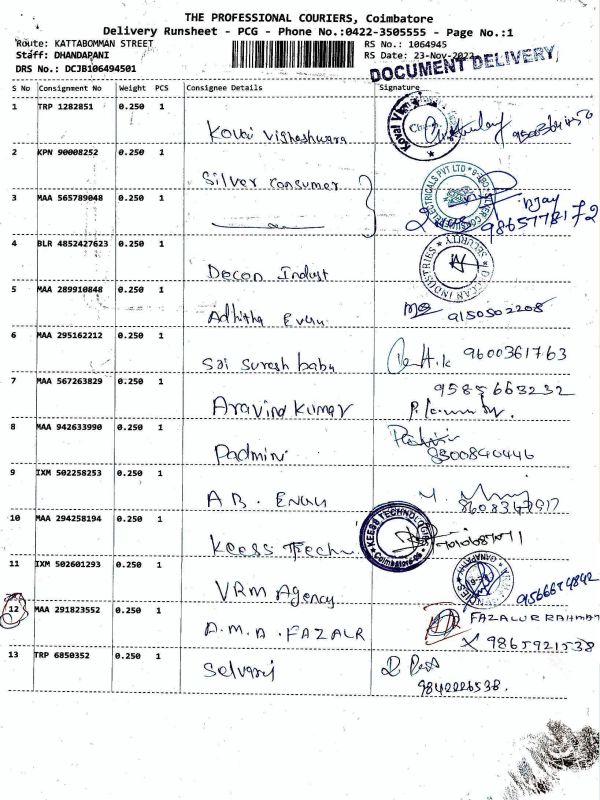 THE PROFESSIONAL COURIERS, Coimbatore
Delivery Runsheet - PCG - Phone No.:0422-3505555 - Page No.:1
Route: KATTABOMMAN STREET
RS No.: 1064945
Staff: DHANDAPANI
RS Date: 23-Nov-2022
DRS No.: DCJB106494501
DOCUMENT DELIVERY
S No Consignment No Weight PCS Consignee Details Signature
1 TRP 1282851 0.250 1
Kovai Vigneshwara
2 KPN 90008252 0.250 1
Silver Consumer
3 MAA 565789048 0.250 1
Vijay
9865778172
4 BLR 4852427623 0.250 1
Deccan Indust
SECURITY
DECCAN INDUSTRIES
5 MAA 289910848 0.250 1
Adhitha
9150502208
6 MAA 295162212 0.250 1
Sri Suresh babu
9600361763
7 MAA 567263829 0.250 1
9585663232
Aravind Kumar
8 MAA 942633990 0.250 1
Padmini
8300840446
9 IXM 502258253 0.250 1
A.B.
10 MAA 294258194 0.250 1
Keess Tech
KEESS TECHNOLOGIES
Coimbatore
11 IXM 502601293 0.250 1
VRM Agency
GANAPATHY
9566654842
12 MAA 291823552 0.250 1
A.M.A. FAZALR
FAZALUR RAHMAN
9865921538
13 TRP 6850352 0.250 1
Selvaraj